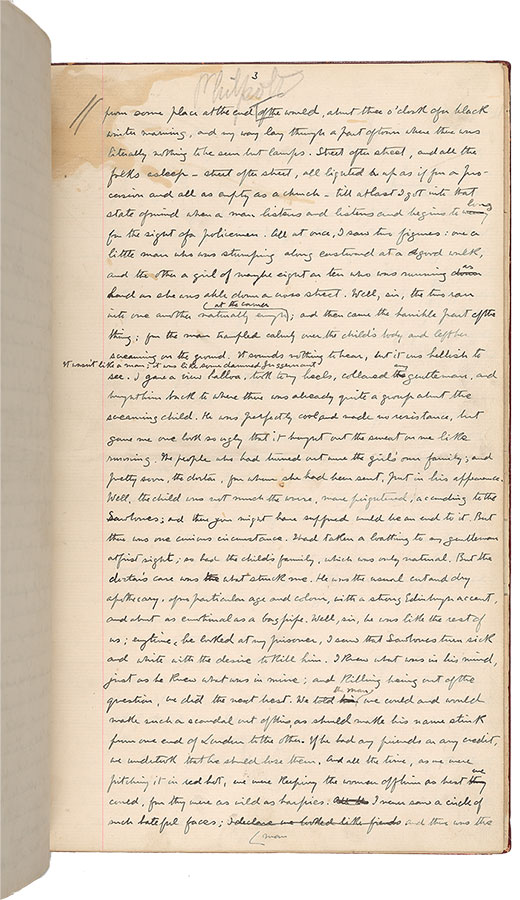 3
Philpott
from some place at the end of the world, about three o'clock of a black
winter morning, and my way lay through a part of town where there was
literally nothing to be seen but lamps. Street after street, and all the
folks asleep – street after street, all lighted up as if for a pro-
cession and all as empty as a church – till at last I got into that
state of mind when a man listens and listens and begins to long
for the sight of a policeman. All at once, I saw two figures: one a
little man who was stumping along eastward at a good walk,
and the other a girl of maybe eight or ten who was running as
hard as she was able down a cross street. Well, sir, the two ran
at the corner
into one another naturally enough; and then came the horrible part of the
thing; for the man trampled calmly over the child's body and left her
screaming on the ground. It sounds nothing to hear, but it was hellish to
It wasn't like a man; it was like some damned Juggernaut
see. I gave a view halloa, took to my heels, collared my gentleman, and
brought him back to where there was already quite a group about the
screaming child. He was perfectly cool and made no resistance, but
gave me one look so ugly that it brought out the sweat on me like
running. The people who had turned out were the girl's own family; and
pretty soon, the doctor, for whom she had been sent, put in his appearance.
Well, the child was not much the worse, more frightened, according to the
Sawbones; and there you might have supposed would be an end to it. But
there was one curious circumstance. I had taken a loathing to my gentleman
at first sight; so had the child's family, which was only natural. But the
doctor's case was what struck me. He was the usual cut and dry
apothecary, of no particular age and colour, with a strong Edinburgh accent,
and about as emotional as a bagpipe. Well, sir, he was like the rest of
us; every time he looked at my prisoner, I saw that Sawbones turn sick
and white with the desire to kill him. I knew what was in his mind,
just as he knew what was in mine; and killing being out of the
question, we did the next best. We told the man we could and would
make such a scandal out of this, as should make his name stink
from one end of London to the other. If he had any friends or any credit,
we undertook that he should lose them. And all the time, as we were
pitching it in red hot, we were keeping the women off him as best we
could, for they were as wild as harpies. I never saw a circle of
such hateful faces; I declare we looked like fiends and there was the
man